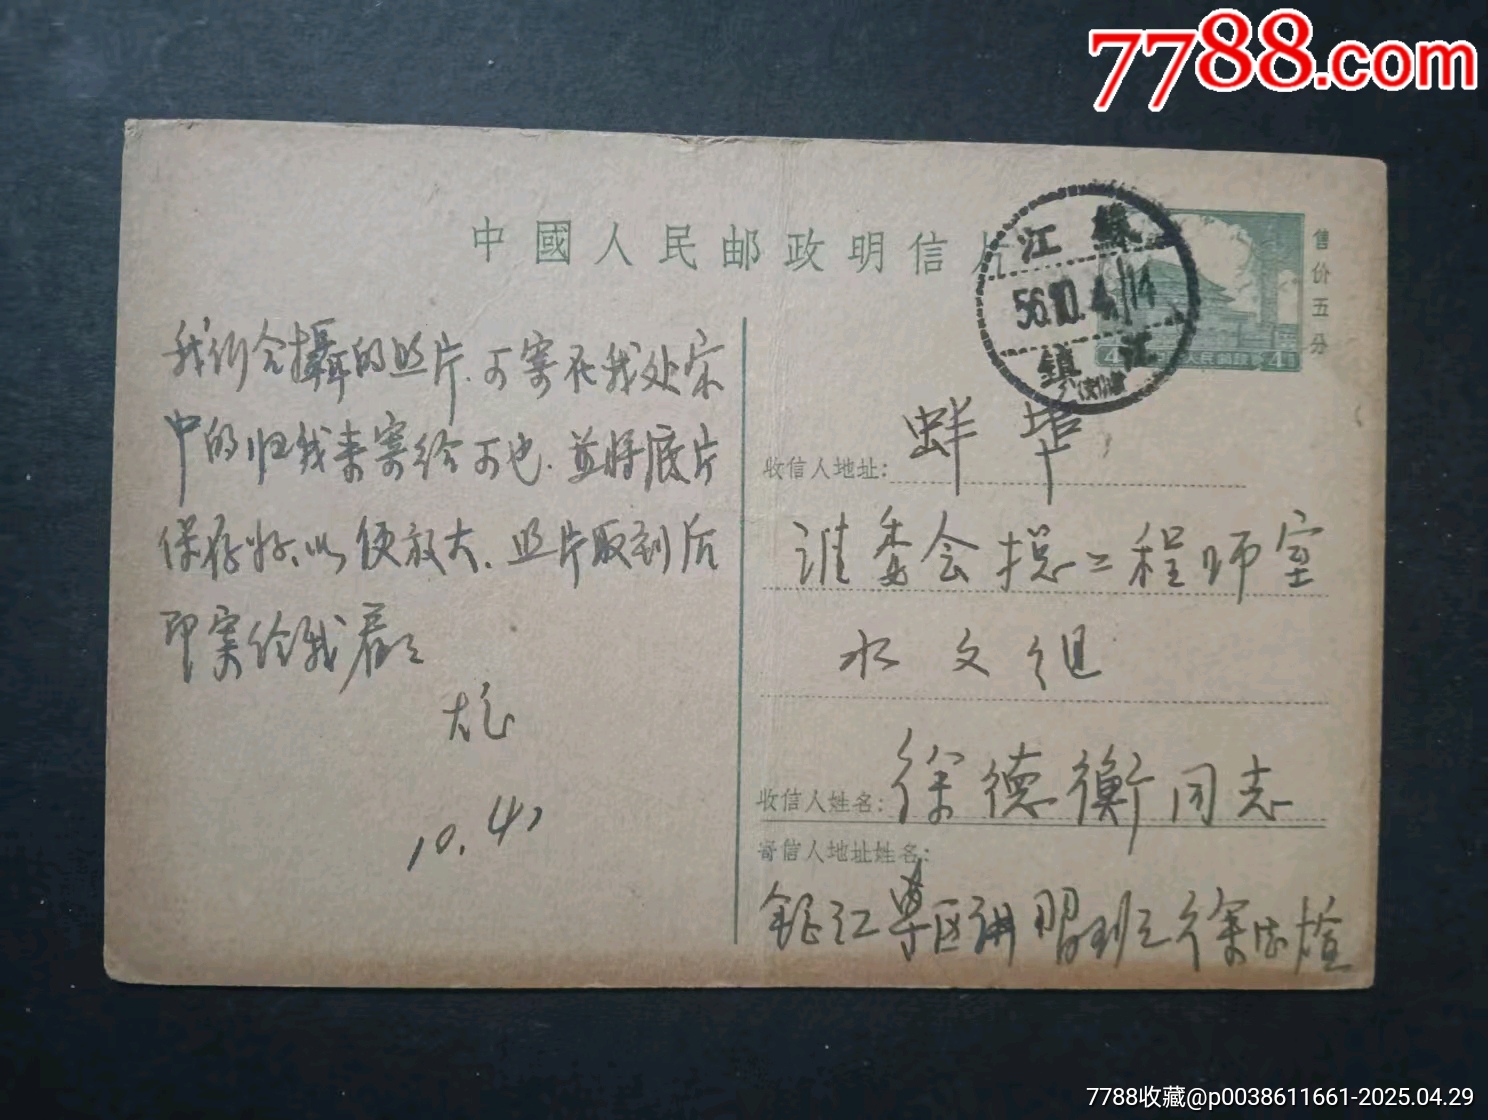 7788.com
中國人民邮政明信片
江蘇
56.10.4.14
鎮江
售价五分
4 人民郵政 4
我们合攝的照片.可寄在我处家
中的归我来寄给可也.並将底片
保存好.以便放大.照片取到后
即寄给我看
10.4/
收信人地址:蚌埠
淮委会揔工程师室
水文组
收信人姓名:徐德衡同志
寄信人地址姓名:
鎮江專区讲習班徐
7788收藏@p0038611661-2025.04.29